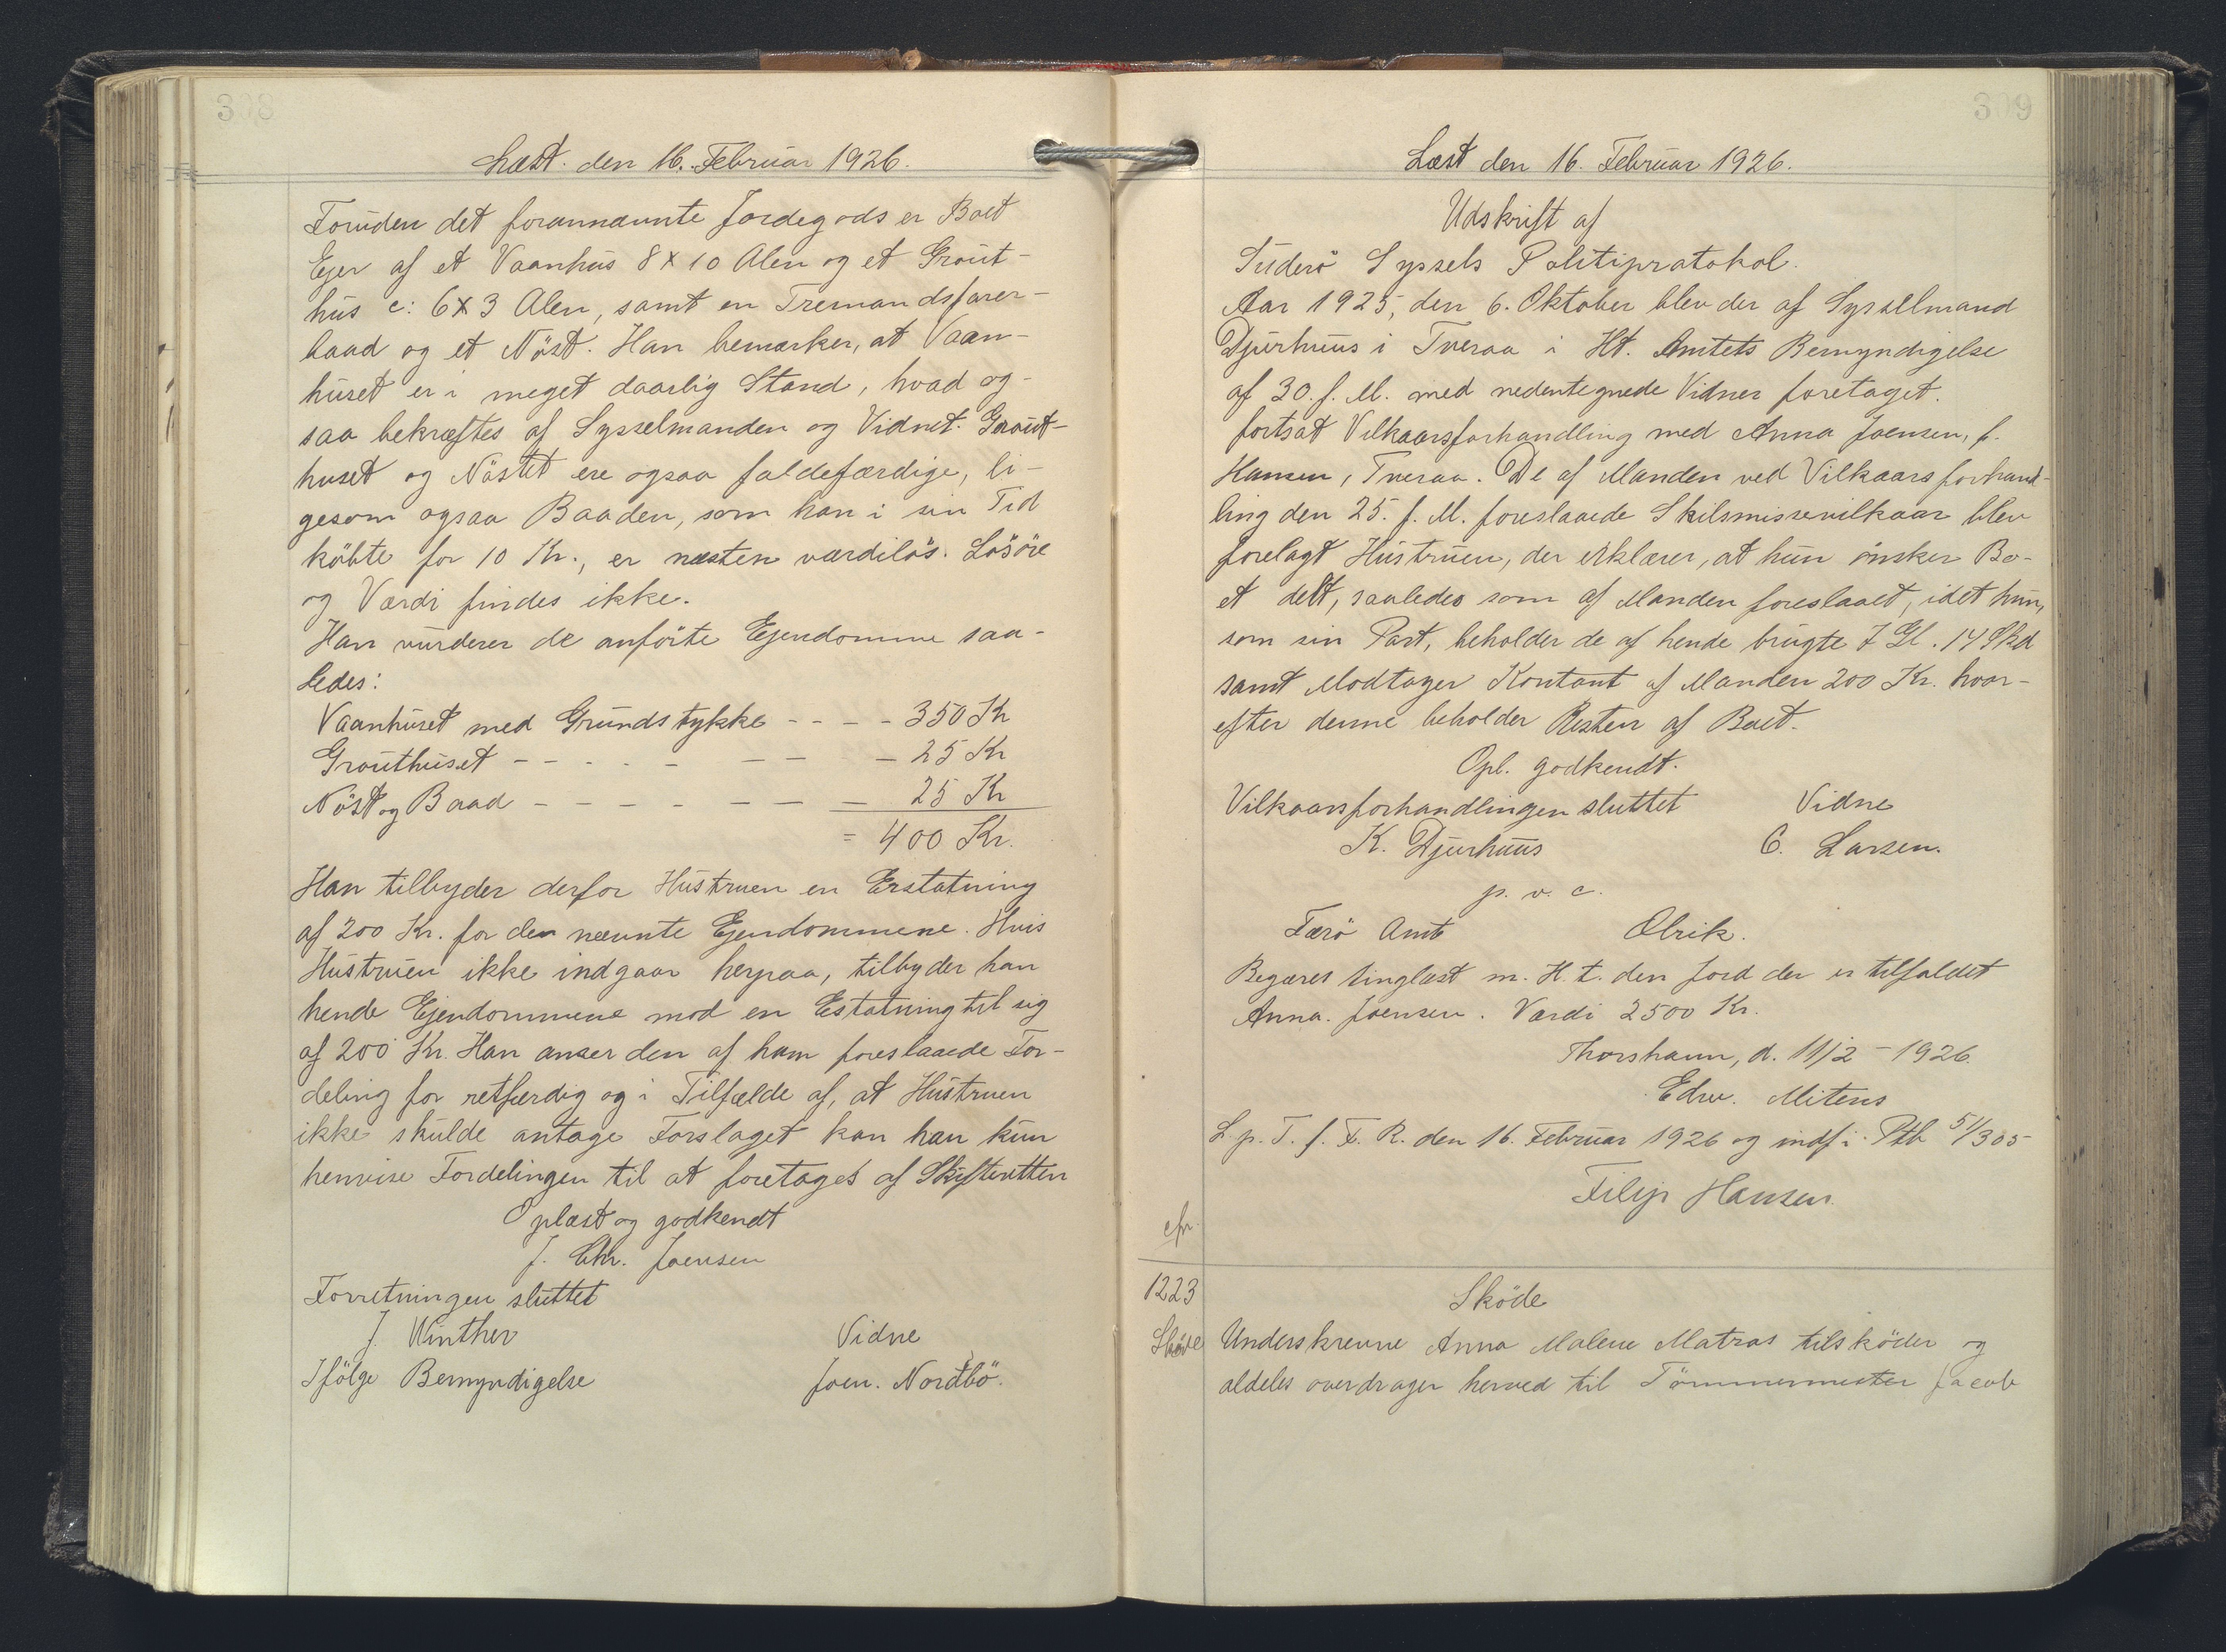 308
Læst. den 16. Februar 1926.
Foruden det forannævnte Jordegods er Boet
Ejer af et Vaanhus 8 x 10 Alen og et Grout-
hus c: 6 x 3 Alen, samt en Tremandsfarer-
baad og et Nöst. Han bemærker, at Vaan-
huset er i meget daarlig Stand, hvad og-
saa bekræftes af Sysselmanden og Vidnet. Grout-
huset og Nöstet ere ogsaa faldefærdige, li-
gesom ogsaa Baaden, som han i sin Tid
köbte for 10 Kr., er næsten værdilös. Lösöre
og Værdi findes ikke.
Han vurderer de anförte Ejendomme saa-
ledes:
Vaanhuset med Grundstykke - - - - 350 Kr
Grouthuset - - - - - - - - 25 Kr
Nöst og Baad - - - - - - - 25 Kr
= 400 Kr.
Han tilbyder derfor Hustruen en Erstatning
af 200 Kr. for de nævnte Ejendommene. Hvis
Hustruen ikke indgaar herpaa, tilbyder han
hende Ejendommene mod en Estatning til sig
af 200 Kr. Han anser den af ham foreslaaede For-
deling for retfærdig og i Tilfælde af, at Hustruen
ikke skulde antage Forslaget kan han kun
henvise Fordelingen til at foretages af Skifteretten
Oplæst og godkendt
J. Chr. Joensen
Forretningen sluttet
J. Winther Vidne
Ifölge Bemyndigelse Joen. Nordbö.
309
Læst den 16. Februar 1926.
Udskrift af
Suderö Syssels Politiprotokol.
Aar 1925, den 6. Oktober blev der af Sysselmand
Djurhuus i Tveraa i Ht. Amtets Bemyndigelse
af 30. f. M. med nedentegnede Vidner foretaget.
fortsat Vilkaarsforhandling med Anna Joensen, f.
Hansen, Tveraa. De af Manden ved Vilkaarsforhand-
ling den 25. f. M. foreslaaede Skilsmissevilkaar blev
forelagt Hustruen, der erklærer, at hun önsker Bo-
et delt, saaledes som af Manden foreslaaet, idet hun,
som sin Part, beholder de af hende brugte 7 Gl. 14 Skd
samt Modtager Kontant af Manden 200 Kr. hvor-
efter denne beholder Resten af Boet.
Opl. godkendt.
Vilkaarsforhandlingen sluttet Vidne
K. Djurhuus C. Larsen.
p. v. c.
Færö Amt Olrik.
Begæres tinglæst m. H. t. den Jord der er tilfaldet
Anna. Joensen. Værdi 2500 Kr.
Thorshavn, d. 11/2 - 1926.
Edw. Mitens
L. p. T. f. F. R. den 16. Februar 1926 og indf i Ptb 51/305
Filip Hansen
cfr.
1223
Sköde
Sköde
Underskrevne Anna Malene Matras tilsköder og
aldeles overdrager herved til Tömmermester Jacob